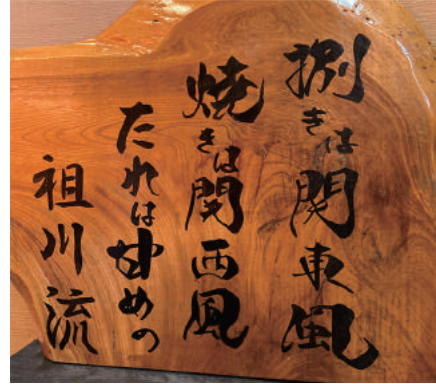 捌きは関東風
焼きは関西風
たれは甘めの
祖川流